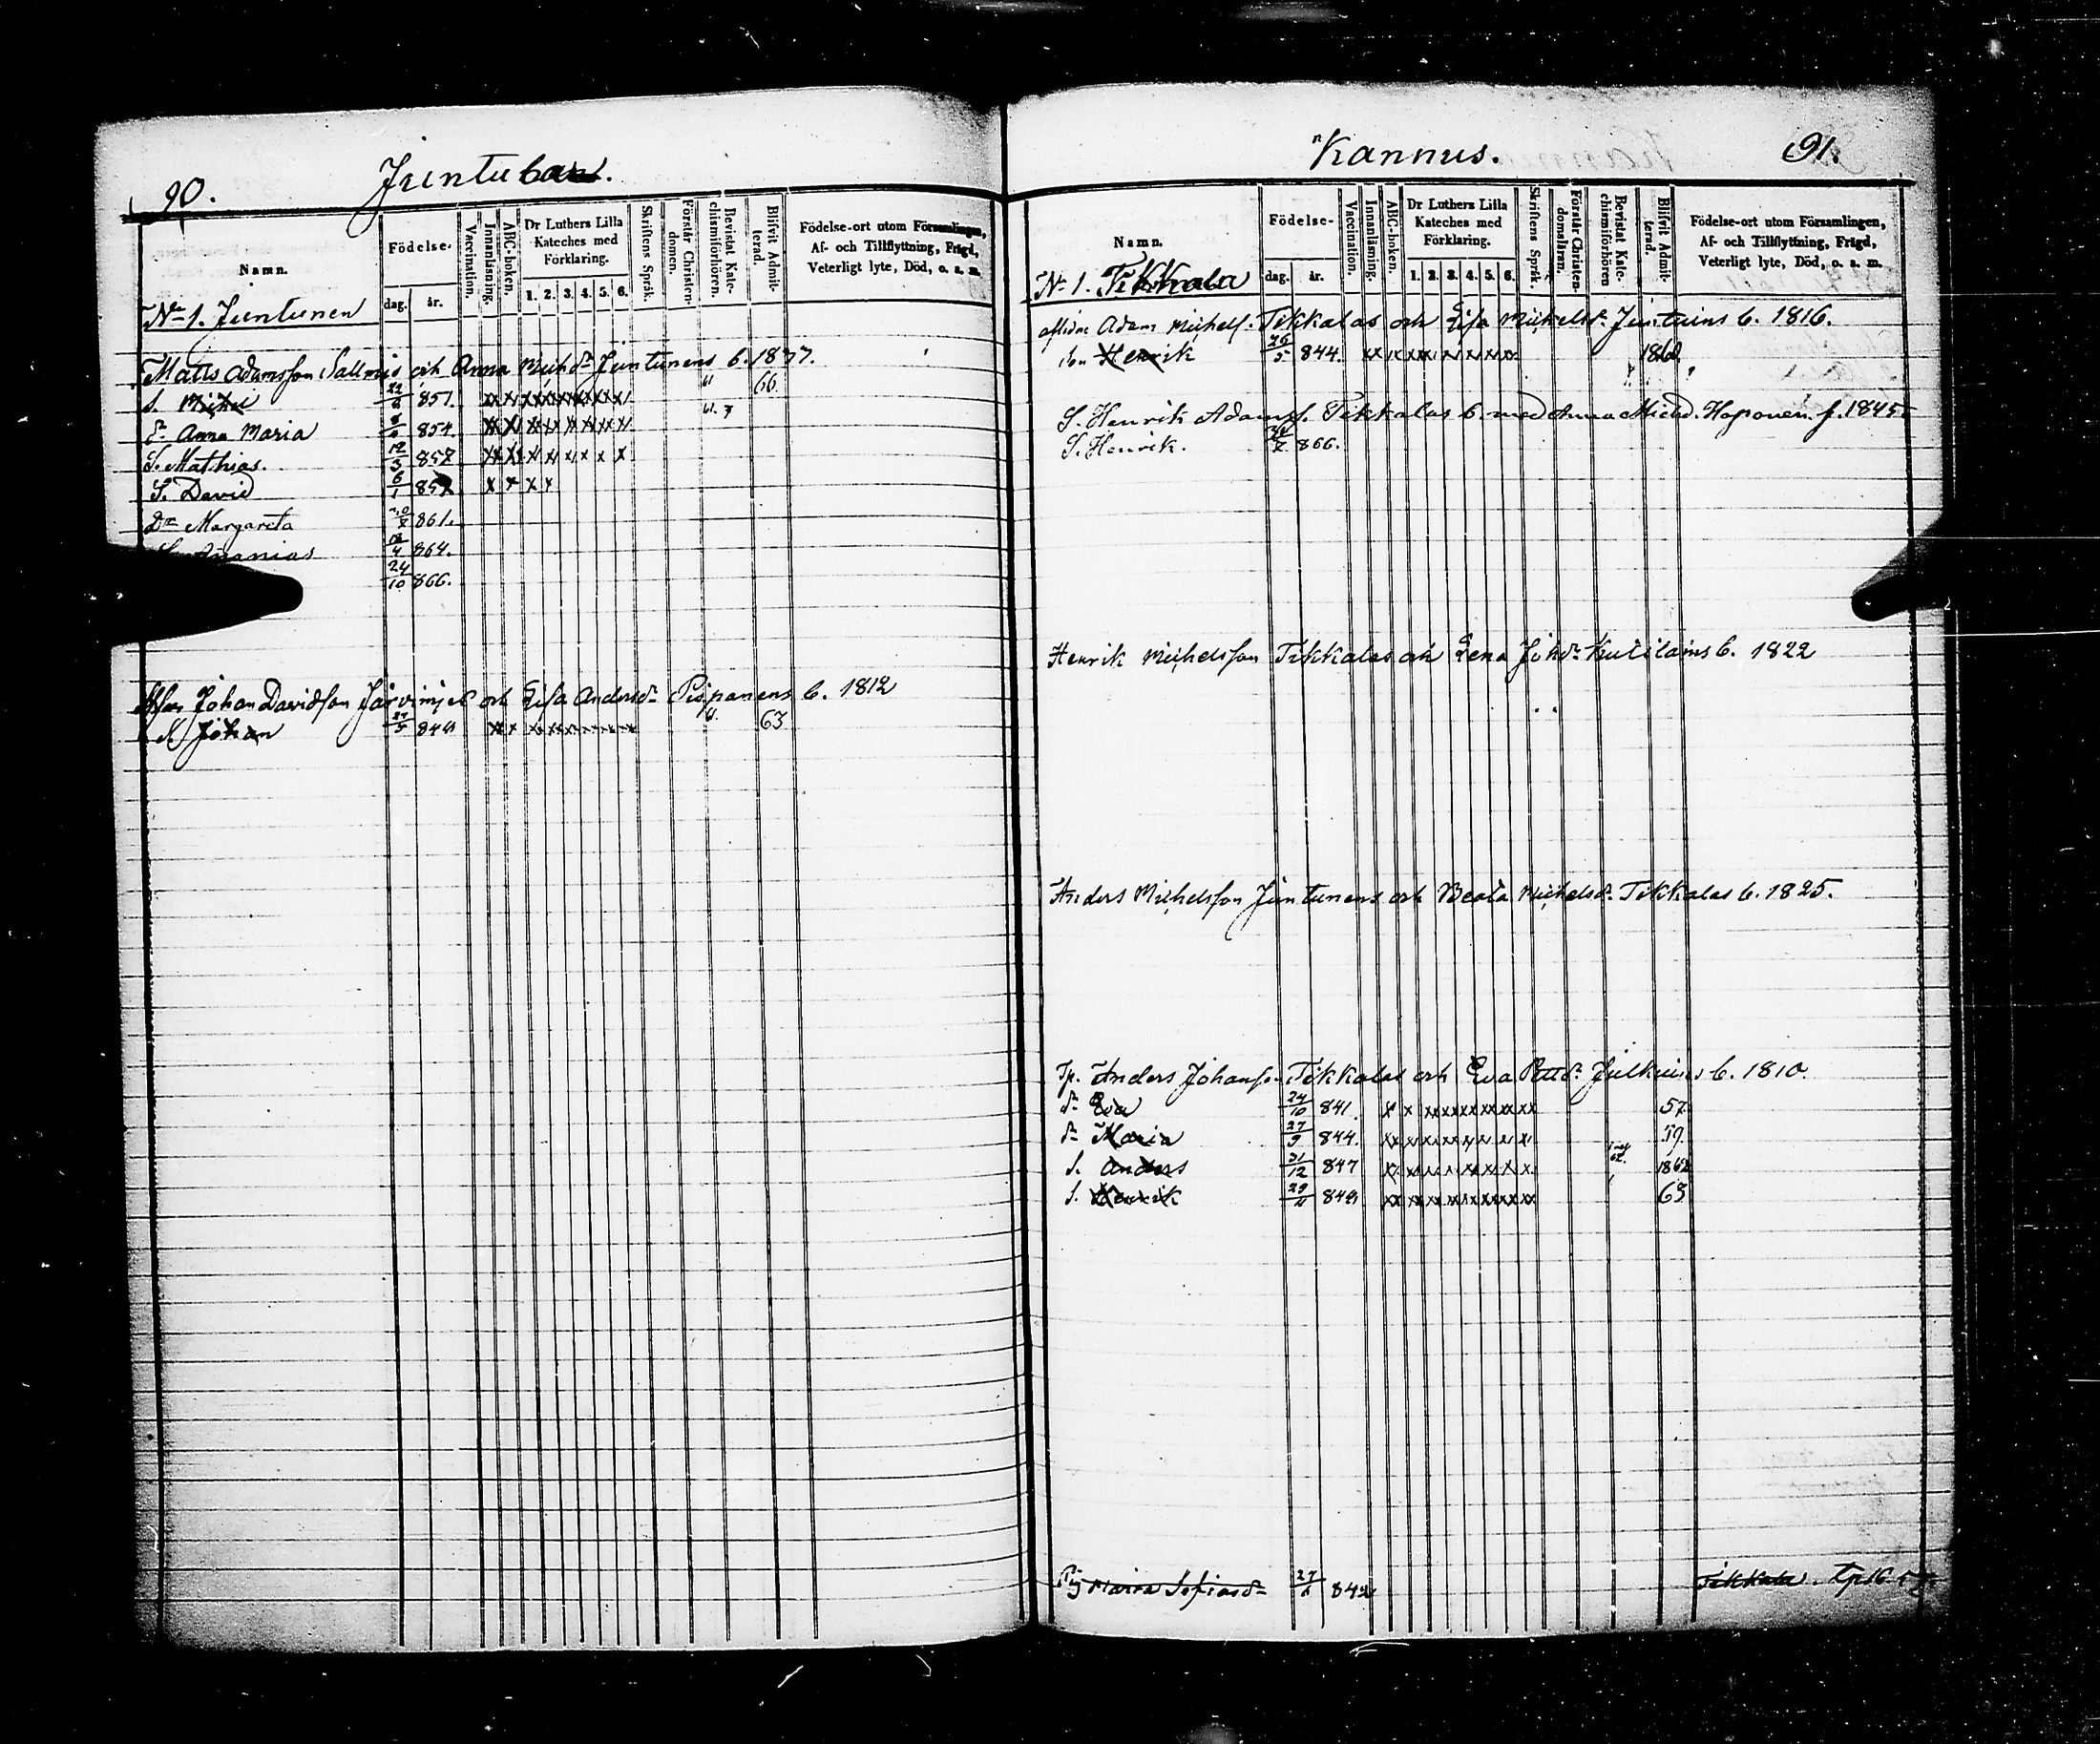 90.
Juntu
Namn.
Födelse-
dag. år.
Vaccination.
Innanläsning.
ABC-boken.
Dr Luthers Lilla Kateches med Förklaring.
1. 2. 3. 4. 5. 6.
Skriftens Språk.
Förstår Christendomen.
Bevistat Katechismiförhören.
Blifvit Admitterad.
Födelse-ort utom Församlingen, Af- och Tillflyttning, Frägd, Veterligt lyte, Död, o. s. m.
No 1. Juntunen
Matts Adamsson Sallmis och Anna Michdr Juntunens b. 1837.
S. Michel 22 851. xx xx xxxxxxxxxx 61 66
dr Anna Maria 854. xx xx xx xx xx xx xx 61. 7
S. Mathias. 19/3 857 xx xx xx x x x x
S. David 6/1 857 x x x x
Dr Margareta 861.
Ananias 4 864.
24/10 866.
Johan Davidson Järvinjet och Lisa Andersdr Pispanens b. 1812
S. Johan 27/5 849 xx x xxxxxxxxx 61. 63
Kannus. 91.
Namn.
Födelse-
dag. år.
Vaccination.
Innanläsning.
ABC-boken.
Dr Luthers Lilla Kateches med Förklaring.
1. 2. 3. 4. 5. 6.
Skriftens Språk.
Förstår Christendomsläran.
Bevistat Katechismiförhören
Blifvit Admitterad.
Födelse-ort utom Församlingen, Af- och Tillflyttning, Frägd, Veterligt lyte, Död, o. s. m.
No 1. Tikkala
aflidne Adam Michels. Tikkalas och Lisa Michelsdr Juntuins b. 1816.
son Henrik 26/5 844. xx xx xxxxxxxx 1860.
S. Henrik Adams. Tikkalas b. med Anna Michd. Haponen f. 1845.
S. Henrik. 866.
Henrik Michelsson Tikkalas och Lena Johdr Kutilains b. 1822
Anders Michelsson Juntunens och Beata Michelsdr Tikkalas b. 1825.
Tp. Anders Johanss. Tikkalas och Eva Pettdr Julkuins b. 1810.
dr Eva 24/10 841. x x xxxxxxxxxx 57
dr Maria 27/9 844. xx xxxxxxxx 59.
S. Anders 21/12 847 xx xxxxxxxx 62. 1862
S. Henrik 29 849 xx xx xxxxxxxx 63
Pig Maria Sofiasdr 27 842 Tikkala